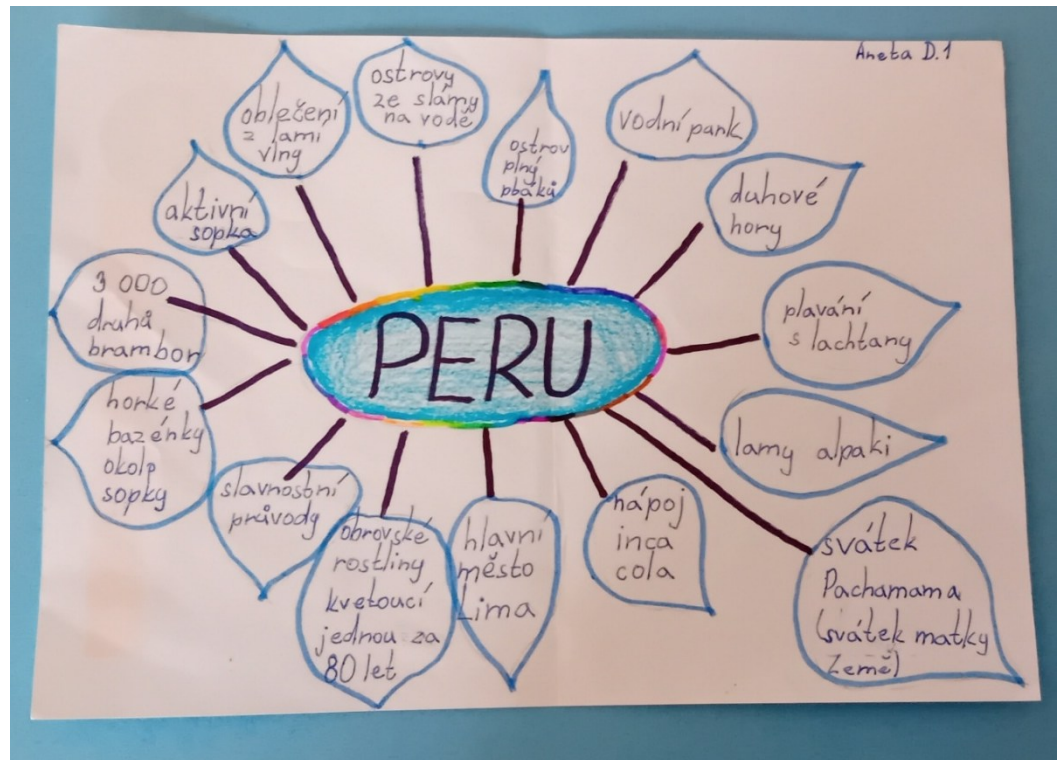 Aneta D.1
oblečení
z lamí
vlny
ostrovy
ze slámy
na vodě
ostrov
plný
ptáků
vodní park
duhové
hory
plavání
s lachtany
lamy alpaki
svátek
Pachamama
(svátek matky
Země)
nápoj
inca
cola
hlavní
město
Lima
obrovské
rostliny
kvetoucí
jednou za
80 let
slavnostní
průvody
horké
bazénky
okolo
sopky
3 000
druhů
brambor
aktivní
sopka
PERU